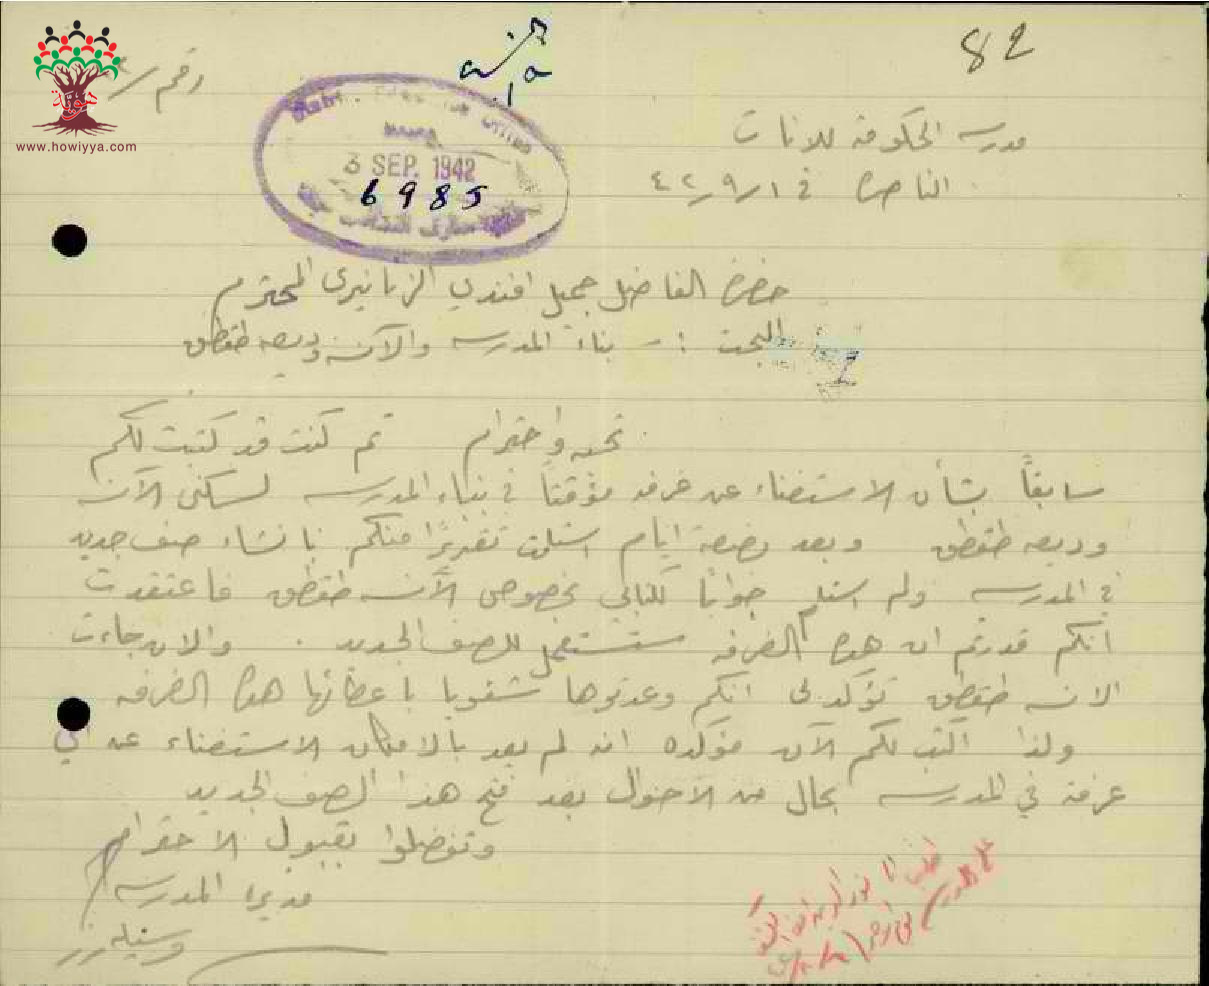 82
رقم
هوية
www.howiyya.com
3 SEP. 1942
6985
مدرسة الحكومة للاناث
الناصرة في ٤٢/٩/١
حضرة الفاضل جميل افندي المحترم
البحث :- بناء المدرسة والآنسة وديعه طقطق
تحيه واحترام ثم كنت قد كتبت لكم
سابقاً بشأن الاستغناء عن غرفه مؤقتاً في بناء المدرسه لسكنى الآنسه
وديعه طقطق وبعد بضعة ايام استلمت تقريراً منكم بانشاء صف جديد
في المدرسه ولم استلم جواباً لكتابي بخصوص الآنسه طقطق فاعتقدت
انكم قدرتم ان هذه الغرفه ستستعمل للصف الجديد . والان جاءت
الانسه طقطق تؤكد لي انكم وعدتوها شفويا باعطائها هذه الغرفه
ولذا اكتب لكم الآن مؤكده انه لم يعد بالامكان الاستغناء عن اي
غرفة في المدرسه بحال من الاحوال بعد فتح هذا الصف الجديد
وتفضلوا بقبول الاحترام
مديرة المدرسة